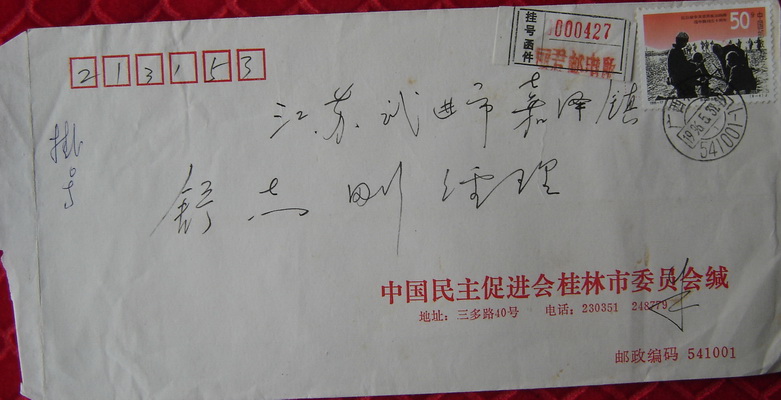 213153
挂号函件
000427
50分
541001
江苏武进市嘉泽镇
舒志刚经理
挂号
中国民主促进会桂林市委员会缄
地址：三多路40号 电话：230351 248779
邮政编码 541001